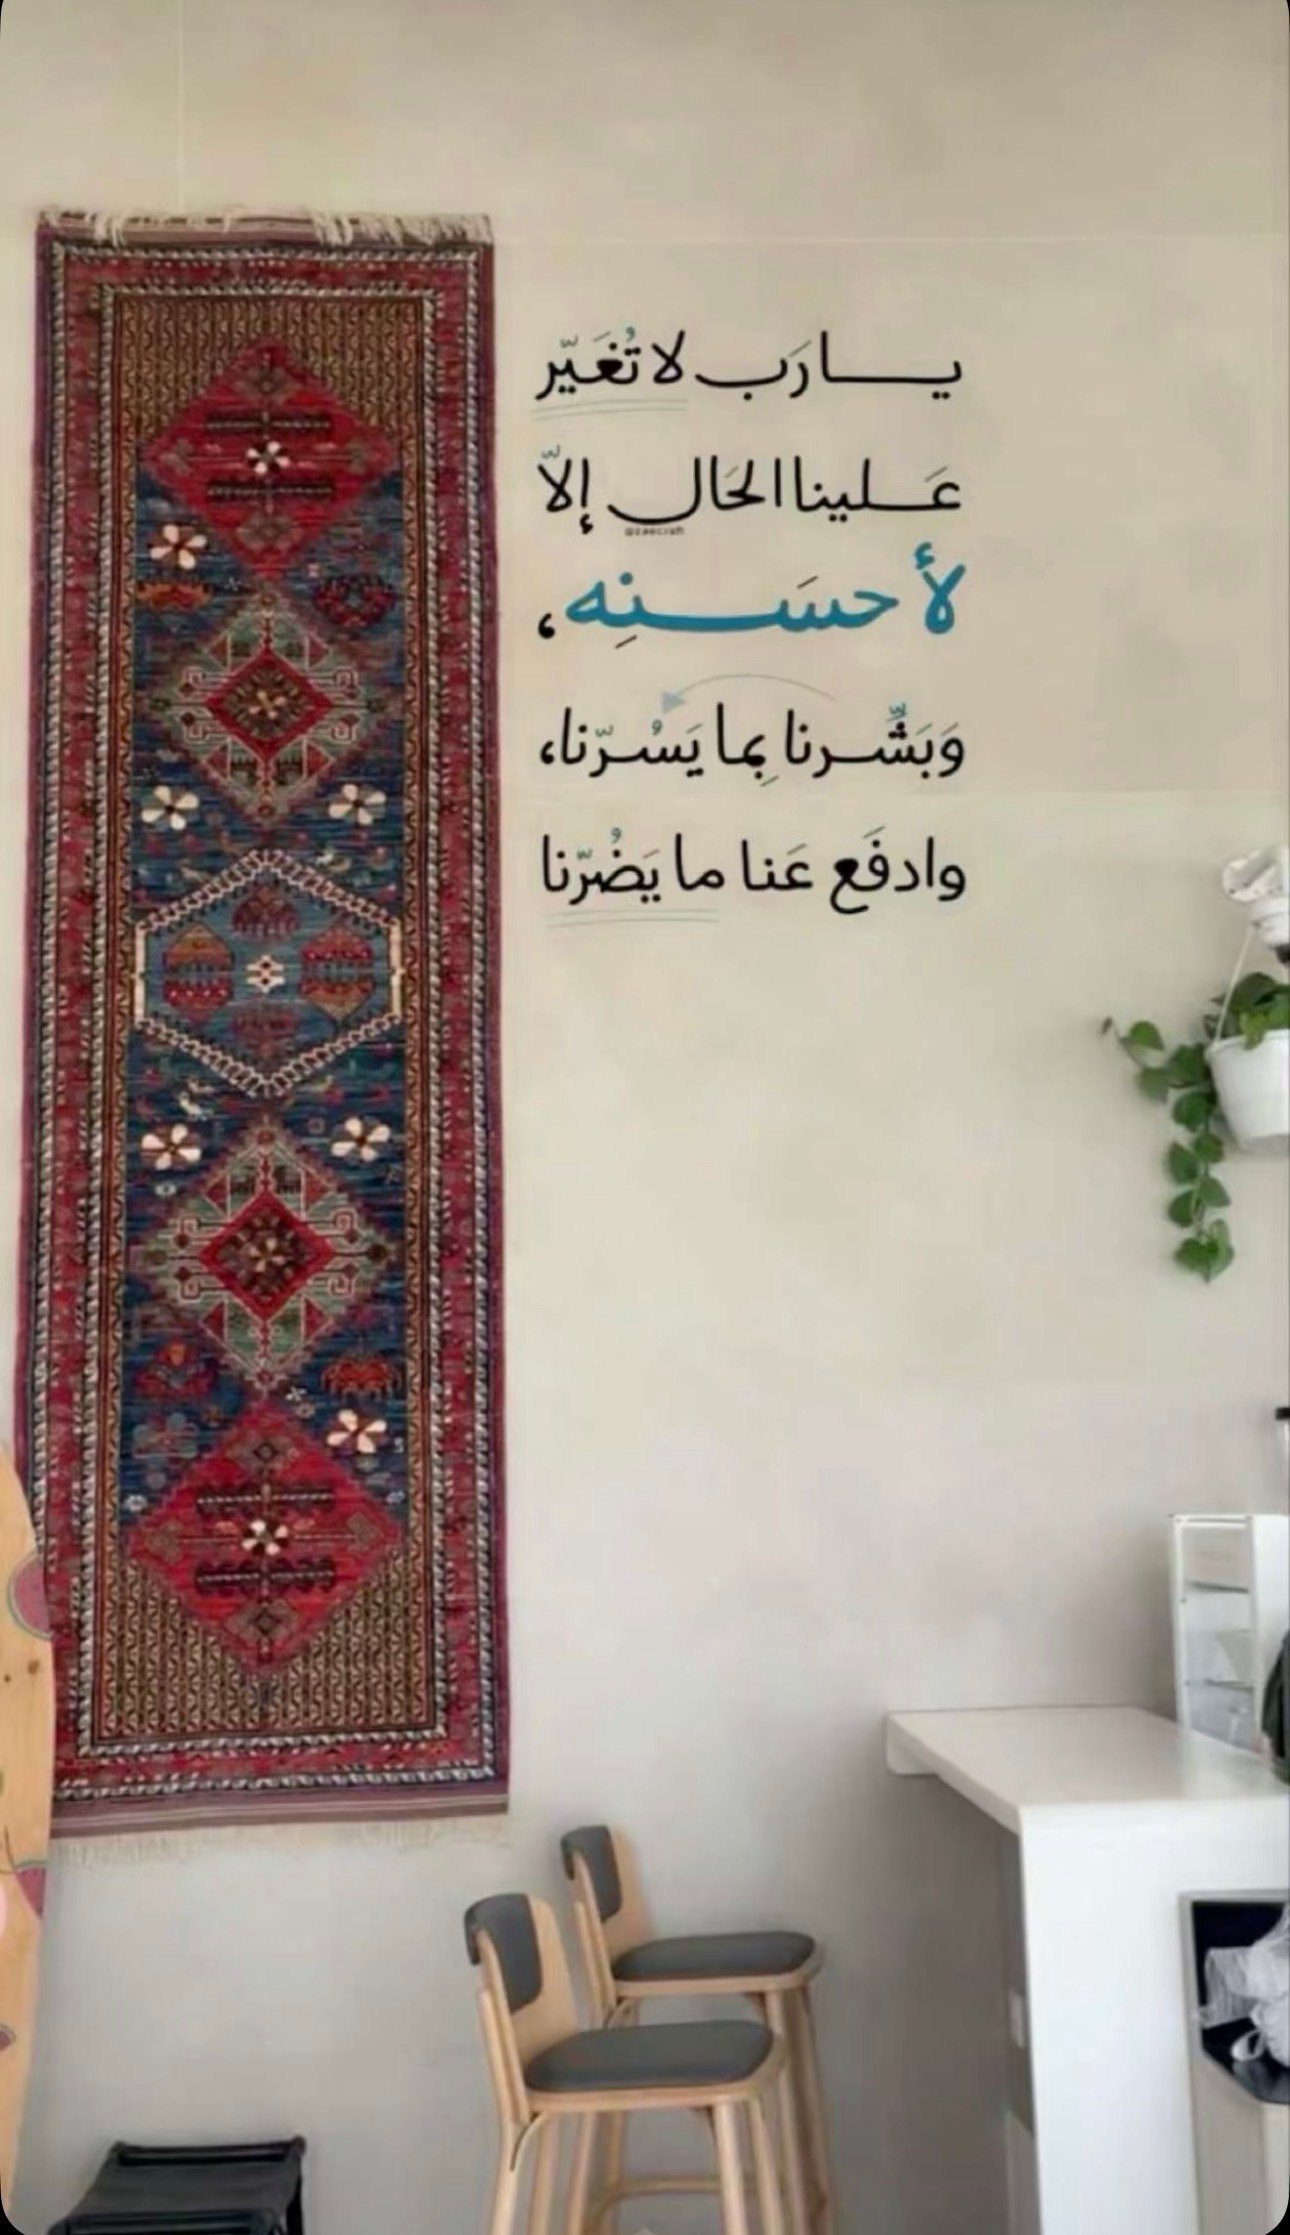 يــــا رَب لا تُغَيّر
عَــلينا الحَال إلاّ
لأحسَــنِه،
وَبَشِّــرنا بِما يَسُــرّنا،
وادفَع عَنا ما يَضُرّنا